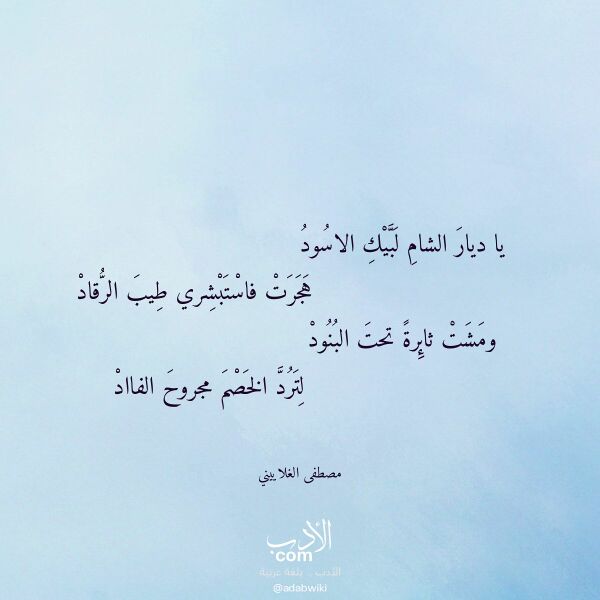 يا ديارَ الشامِ لَبَّيْكِ الاسُودُ
هَجَرَتْ فاسْتَبْشِري طِيبَ الرُّقادْ
ومَشَتْ ثائِرةً تحتَ البُنُودْ
لِتَرُدَّ الخَصْمَ مجروحَ الفاادْ
مصطفى الغلاييني
الأدب
com
الأدب .. بلغة عربية
@adabwiki